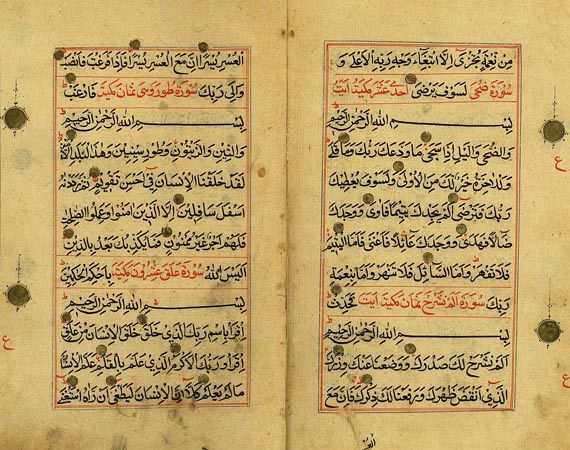 مِن نِعمَةٍ تُجزىٰ اِلَّا ابتِغَاءَ وَجهِ رَبِّهِ الاَعلىٰ وَ
سُورَة ضُحى لَسَوفَ يَرضىٰ احدَ عشَر مَكيّة ايت
بِسمِ اللهِ الرَّحمٰنِ الرَّحِيمِ
وَالضُّحىٰ وَالَّيلِ اِذَا سَجىٰ مَا وَدَّعَكَ رَبُّكَ وَمَا قَلىٰ
وَلَلاٰخِرَةُ خَيرٌ لَكَ مِنَ الاُولىٰ وَلَسَوفَ يُعطِيكَ
رَبُّكَ فَتَرضىٰ اَلَم يَجِدكَ يَتِيمًا فَاٰوىٰ وَوَجَدَكَ
ضَالًّا فَهَدىٰ وَوَجَدَكَ عَائِلًا فَاَغنىٰ فَاَمَّا اليَتِيمَ
فَلَا تَقهَر وَاَمَّا السَّائِلَ فَلَا تَنهَر وَاَمَّا بِنِعمَةِ
رَبِّكَ سُورَة اَلَم نَشرَح ثمان مَكيّة ايت فَحَدِّث
بِسمِ اللهِ الرَّحمٰنِ الرَّحِيمِ
اَلَم نَشرَح لَكَ صَدرَكَ وَوَضَعنَا عَنكَ وِزرَكَ
الَّذِي اَنقَضَ ظَهرَكَ وَرَفَعنَا لَكَ ذِكرَكَ فَاِنَّ مَعَ
العُسرِ يُسرًا اِنَّ مَعَ العُسرِ يُسرًا فَاِذَا فَرَغتَ فَانصَب
وَاِلىٰ رَبِّكَ سُورَة ثمان مَكيّة فَارغَب
بِسمِ اللهِ الرَّحمٰنِ الرَّحِيمِ
وَالتِّينِ وَالزَّيتُونِ وَطُورِ سِينِينَ وَهٰذَا البَلَدِ الاَ
لَقَد خَلَقنَا الاِنسَانَ فِي اَحسَنِ تَقوِيمٍ ثُمَّ رَدَدنٰهُ
اَسفَلَ سَافِلِينَ اِلَّا الَّذِينَ اٰمَنُوا وَعَمِلُوا الصّٰلِحٰ
فَلَهُم اَجرٌ غَيرُ مَمنُونٍ فَمَا يُكَذِّبُكَ بَعدُ بِالدِّينِ
اَلَيسَ اللهُ سُورَة عَلَق عشرون مَكيّة بِاَحكَمِ الحٰكِمِينَ
بِسمِ اللهِ الرَّحمٰنِ الرَّحِيمِ
اِقرَأ بِاسمِ رَبِّكَ الَّذِي خَلَقَ خَلَقَ الاِنسَانَ مِن عَلَقٍ
اِقرَأ وَرَبُّكَ الاَكرَمُ الَّذِي عَلَّمَ بِالقَلَمِ عَلَّمَ الاِنسَانَ
مَا لَم يَعلَم كَلَّا اِنَّ الاِنسَانَ لَيَطغىٰ اَن رَاٰهُ استَغنىٰ